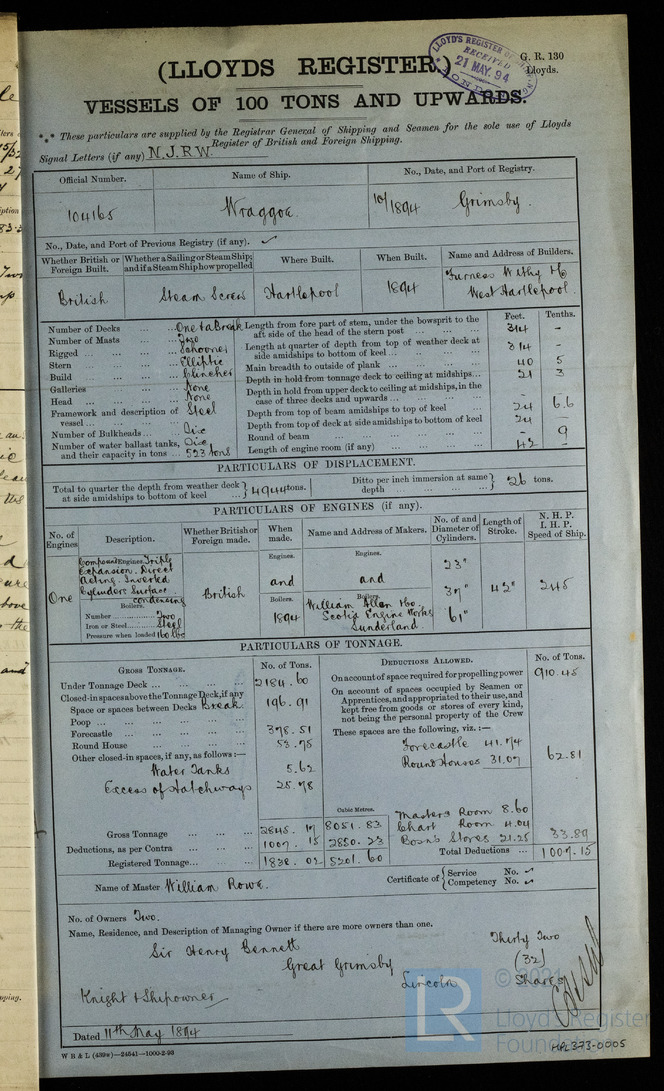 G. R. 130
Lloyds.
LLOYD'S REGISTER
RECEIVED
21 MAY. 94
LONDON
(LLOYDS REGISTER.)
VESSELS OF 100 TONS AND UPWARDS.
*** These particulars are supplied by the Registrar General of Shipping and Seamen for the sole use of Lloyds
Register of British and Foreign Shipping.
Signal Letters (if any) N.J.R.W.
Official Number. Name of Ship. No., Date, and Port of Registry.
104165 Wraggoe. 10/1894 Grimsby.
No., Date, and Port of Previous Registry (if any).
Whether British or Foreign Built. Whether a Sailing or Steam Ship; and if a Steam Ship how propelled Where Built. When Built. Name and Address of Builders.
British Steam Screw Hartlepool 1894 Furness Withy & Co West Hartlepool.
Number of Decks One & a Break
Number of Masts Two
Rigged Schooner
Stern Elliptic
Build Clincher
Galleries None
Head None
Framework and description of vessel Steel
Number of Bulkheads Six
Number of water ballast tanks, and their capacity in tons Six 523 tons
Feet. Tenths.
Length from fore part of stem, under the bowsprit to the aft side of the head of the stern post 314 -
Length at quarter of depth from top of weather deck at side amidships to bottom of keel 314 -
Main breadth to outside of plank 40 5
Depth in hold from tonnage deck to ceiling at midships 21 3
Depth in hold from upper deck to ceiling at midships, in the case of three decks and upwards -
Depth from top of beam amidships to top of keel 24 6.6
Depth from top of deck at side amidships to bottom of keel 24 -
Round of beam - 9
Length of engine room (if any) 42 -
PARTICULARS OF DISPLACEMENT.
Total to quarter the depth from weather deck at side amidships to bottom of keel 4944 tons. Ditto per inch immersion at same depth 26 tons.
PARTICULARS OF ENGINES (if any).
No. of Engines Description. Whether British or Foreign made. When made. Name and Address of Makers. No. of and Diameter of Cylinders. Length of Stroke. N. H. P. I. H. P. Speed of Ship.
One
Compound Engines Triple
Expansion. Direct
Acting. Inverted
Cylinders Surface
condensing
Boilers.
Number Two
Iron or Steel Steel
Pressure when loaded 160 lbs
British
Engines.
and
Boilers.
1894
Engines.
and
Boilers.
William Allan & Co.
Scotia Engine Works
Sunderland.
23"
37"
61"
42"
245
PARTICULARS OF TONNAGE.
GROSS TONNAGE. No. of Tons.
Under Tonnage Deck 2184.60
Closed-in spaces above the Tonnage Deck, if any
Space or spaces between Decks Break. 196.91
Poop
Forecastle 378.51
Round House 53.75
Other closed-in spaces, if any, as follows:—
Water Tanks 5.62
Excess of Hatchways 25.78
Cubic Metres.
Gross Tonnage 2845.17 8051.83
Deductions, as per Contra 1007.15 2850.23
Registered Tonnage 1838.02 5201.60
DEDUCTIONS ALLOWED. No. of Tons.
On account of space required for propelling power 910.45
On account of spaces occupied by Seamen or Apprentices, and appropriated to their use, and kept free from goods or stores of every kind, not being the personal property of the Crew
These spaces are the following, viz.:—
Forecastle 41.74
Round Houses 31.07
62.81
Masters Room 8.60
Chart Room 4.04
Bosn's Stores 21.25
33.89
Total Deductions 1007.15
Name of Master William Rowe. Certificate of Service No. Competency No.
No. of Owners Two.
Name, Residence, and Description of Managing Owner if there are more owners than one.
Sir Henry Bennett
Great Grimsby
Lincoln
Knight & Shipowner
Thirty Two
(32)
Shares
Dated 11th May 1894
W B & L (439w)—24541—1000-2-93
© 2021
LR
Lloyd's Register
Foundation
HPL373-0005